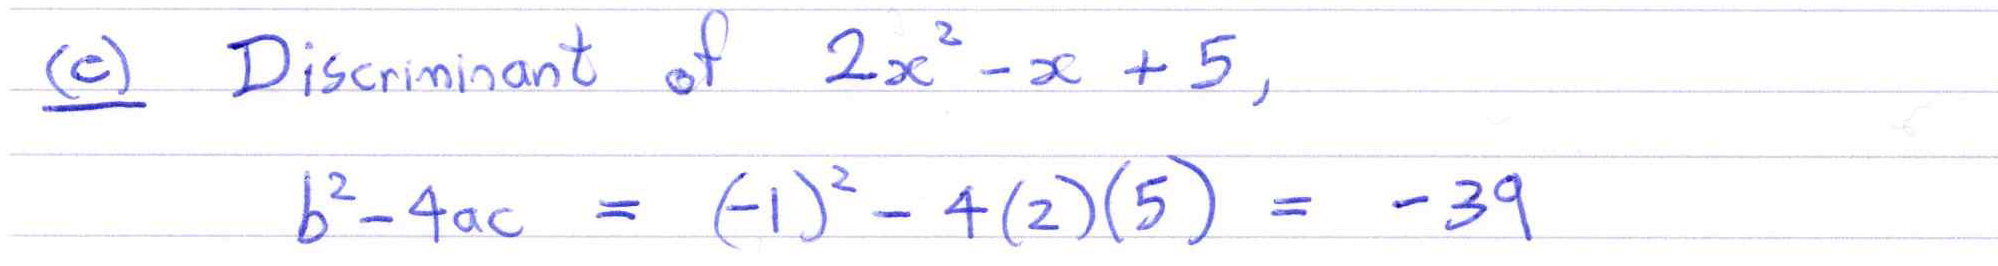 (c) Discriminant of 2x² - x + 5,
b² - 4ac = (-1)² - 4(2)(5) = -39